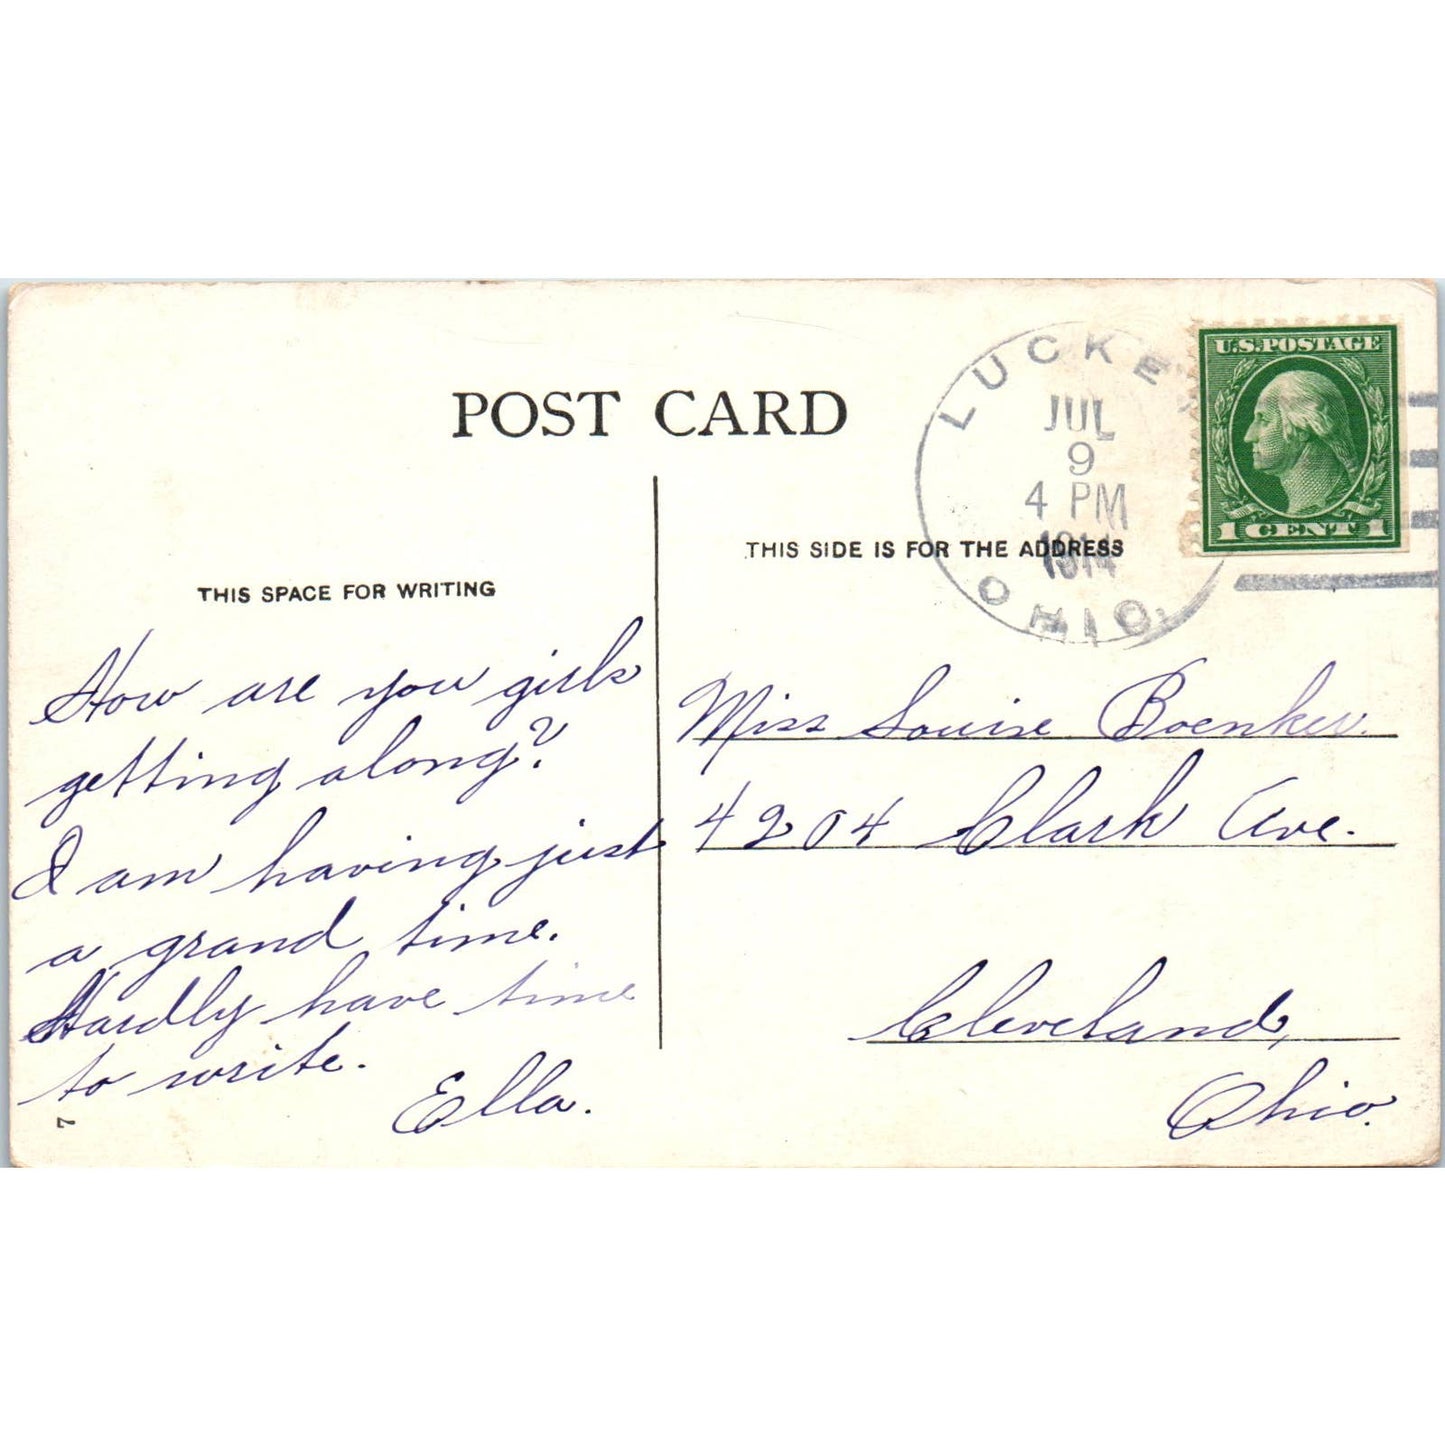 POST CARD
LUCKEY
JUL
9
4 PM
1914
OHIO.
U.S.POSTAGE
1 CENT 1
THIS SPACE FOR WRITING
How are you girls
getting along?
I am having just
a grand time.
Hardly have time
to write.
Ella.
7
THIS SIDE IS FOR THE ADDRESS
Miss Louise Boenker.
4204 Clark Ave.
Cleveland,
Ohio.